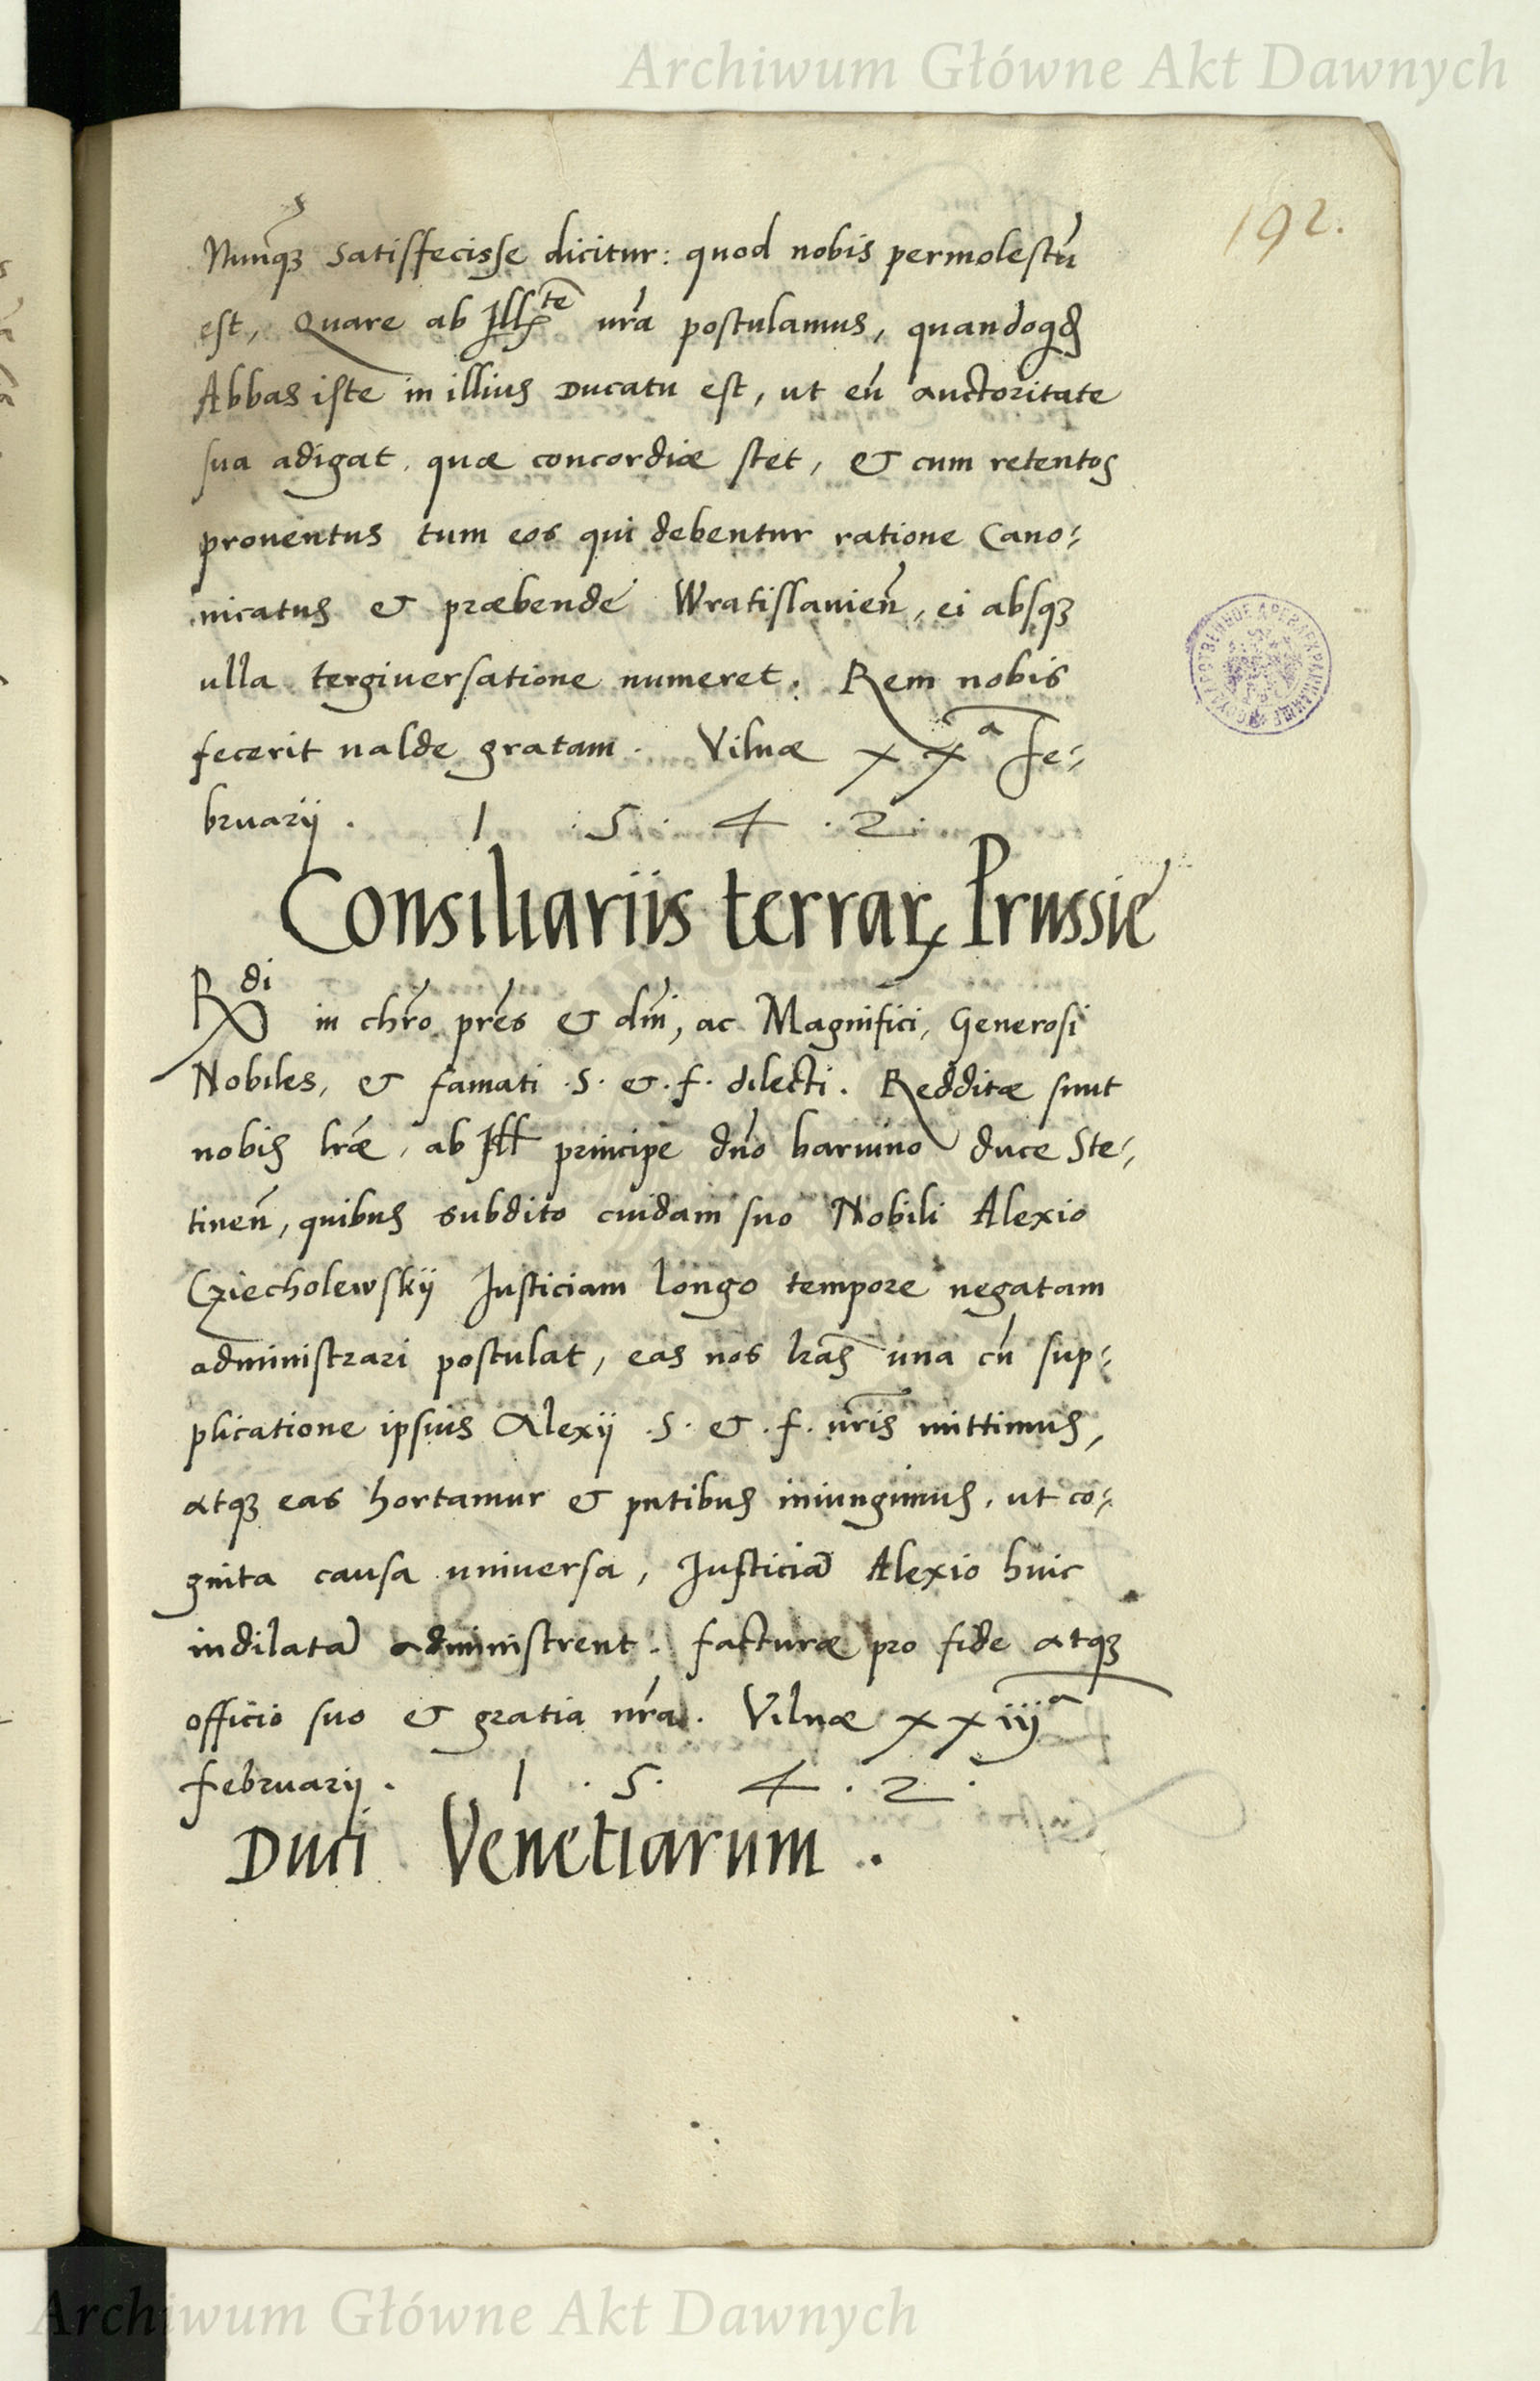 Archiwum Główne Akt Dawnych
192.
Nunqꝫ satisfecisse dicitur: quod nobis permolestū
est, Quare ab Illᵗᵉ vrā postulamus, quandoqꝫ
Abbas iste in illius Ducatu est, ut eū auctoritate
sua adigat, quæ concordiæ stet, & cum retentos
prouentus tum eos qui debentur ratione Cano-
nicatus & præbendę Wratislauien̄, ei absqꝫ
ulla tergiuersatione numeret. Rem nobis
fecerit ualde gratam. Vilnæ XXᵃ Fe-
bruarij. 1.5.4.2.
Consiliariis terrarꝝ Prussię
Rᵈⁱ in chro pres & dni, ac Magnifici, Generosi
Nobiles, & famati .S. &. f. dilecti. Redditæ sunt
nobis lræ, ab Ill principe dno barnino duce Ste-
tinen̄, quibus subdito cuidam suo Nobili Alexio
Cziecholewskij Justiciam longo tempore negatam
administrari postulat, eas nos lras una cū sup-
plicatione ipsius Alexij .S. &. f. vris mittimus,
atqꝫ eas hortamur & pntibus iniungimus, ut co-
gnita causa uniuersa, Justiciā Alexio huic
indilatā administrent. facturæ pro fide atqꝫ
officio suo & gratia nra. Vilnæ xxiijᵃ
februarij. 1.5.4.2.
Duci Venetiarum.
Archiwum Główne Akt Dawnych